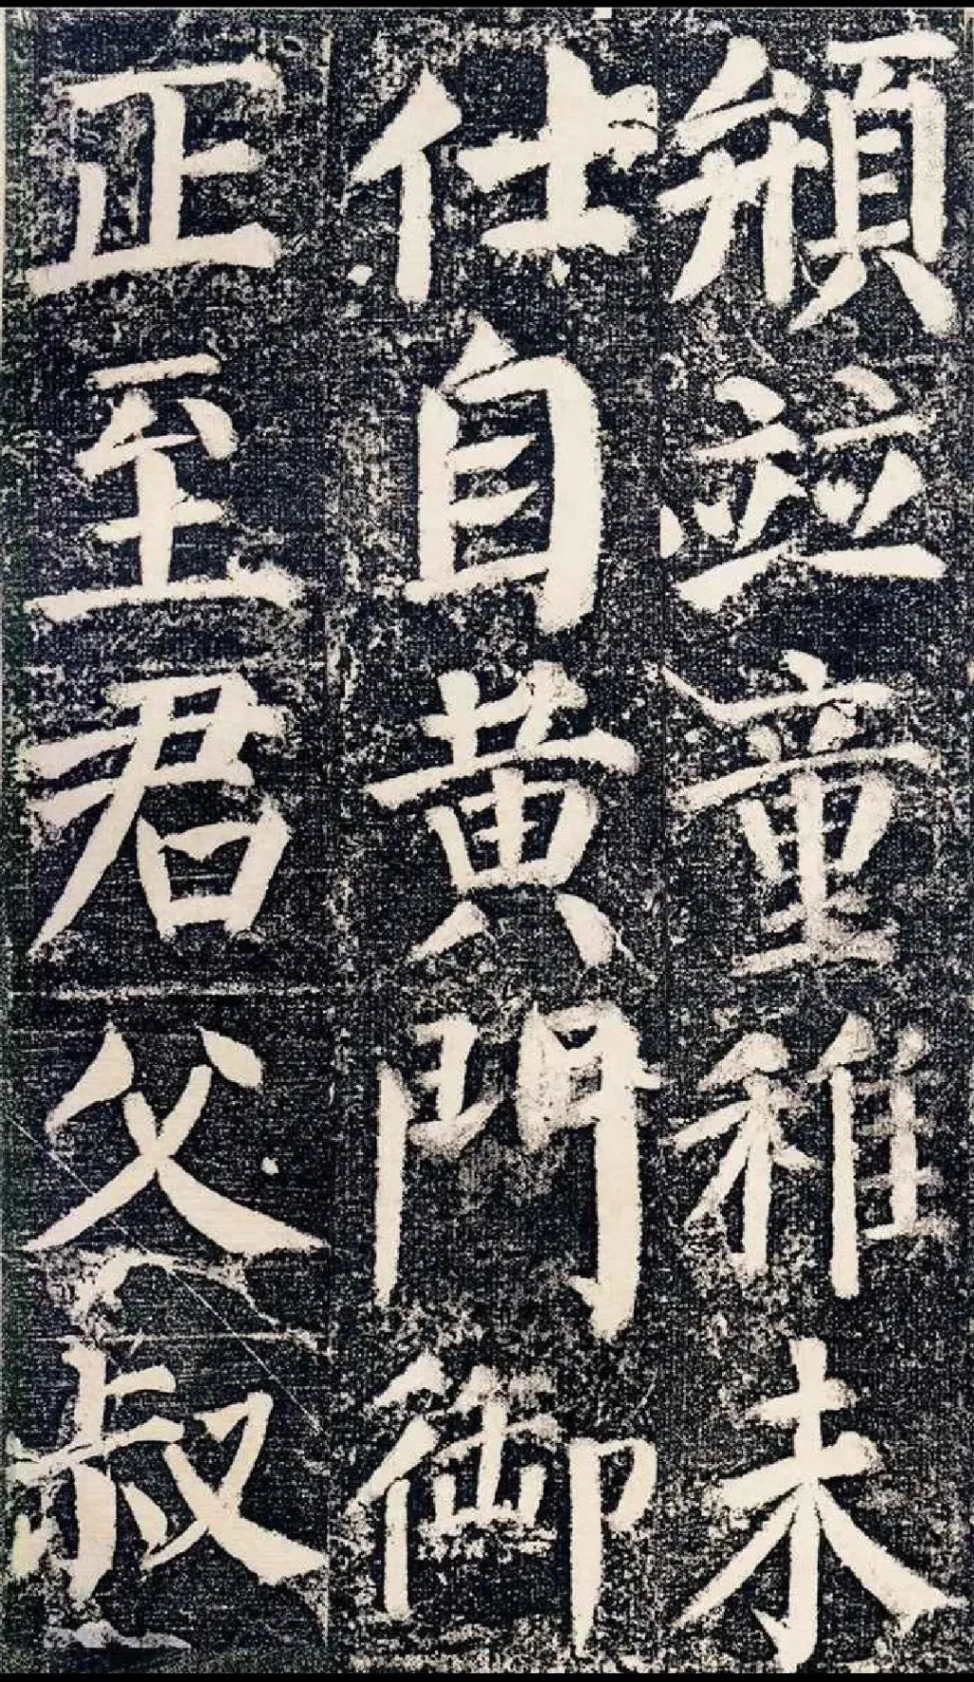 頩竝童稚未
仕自黃門御
正至君父叔